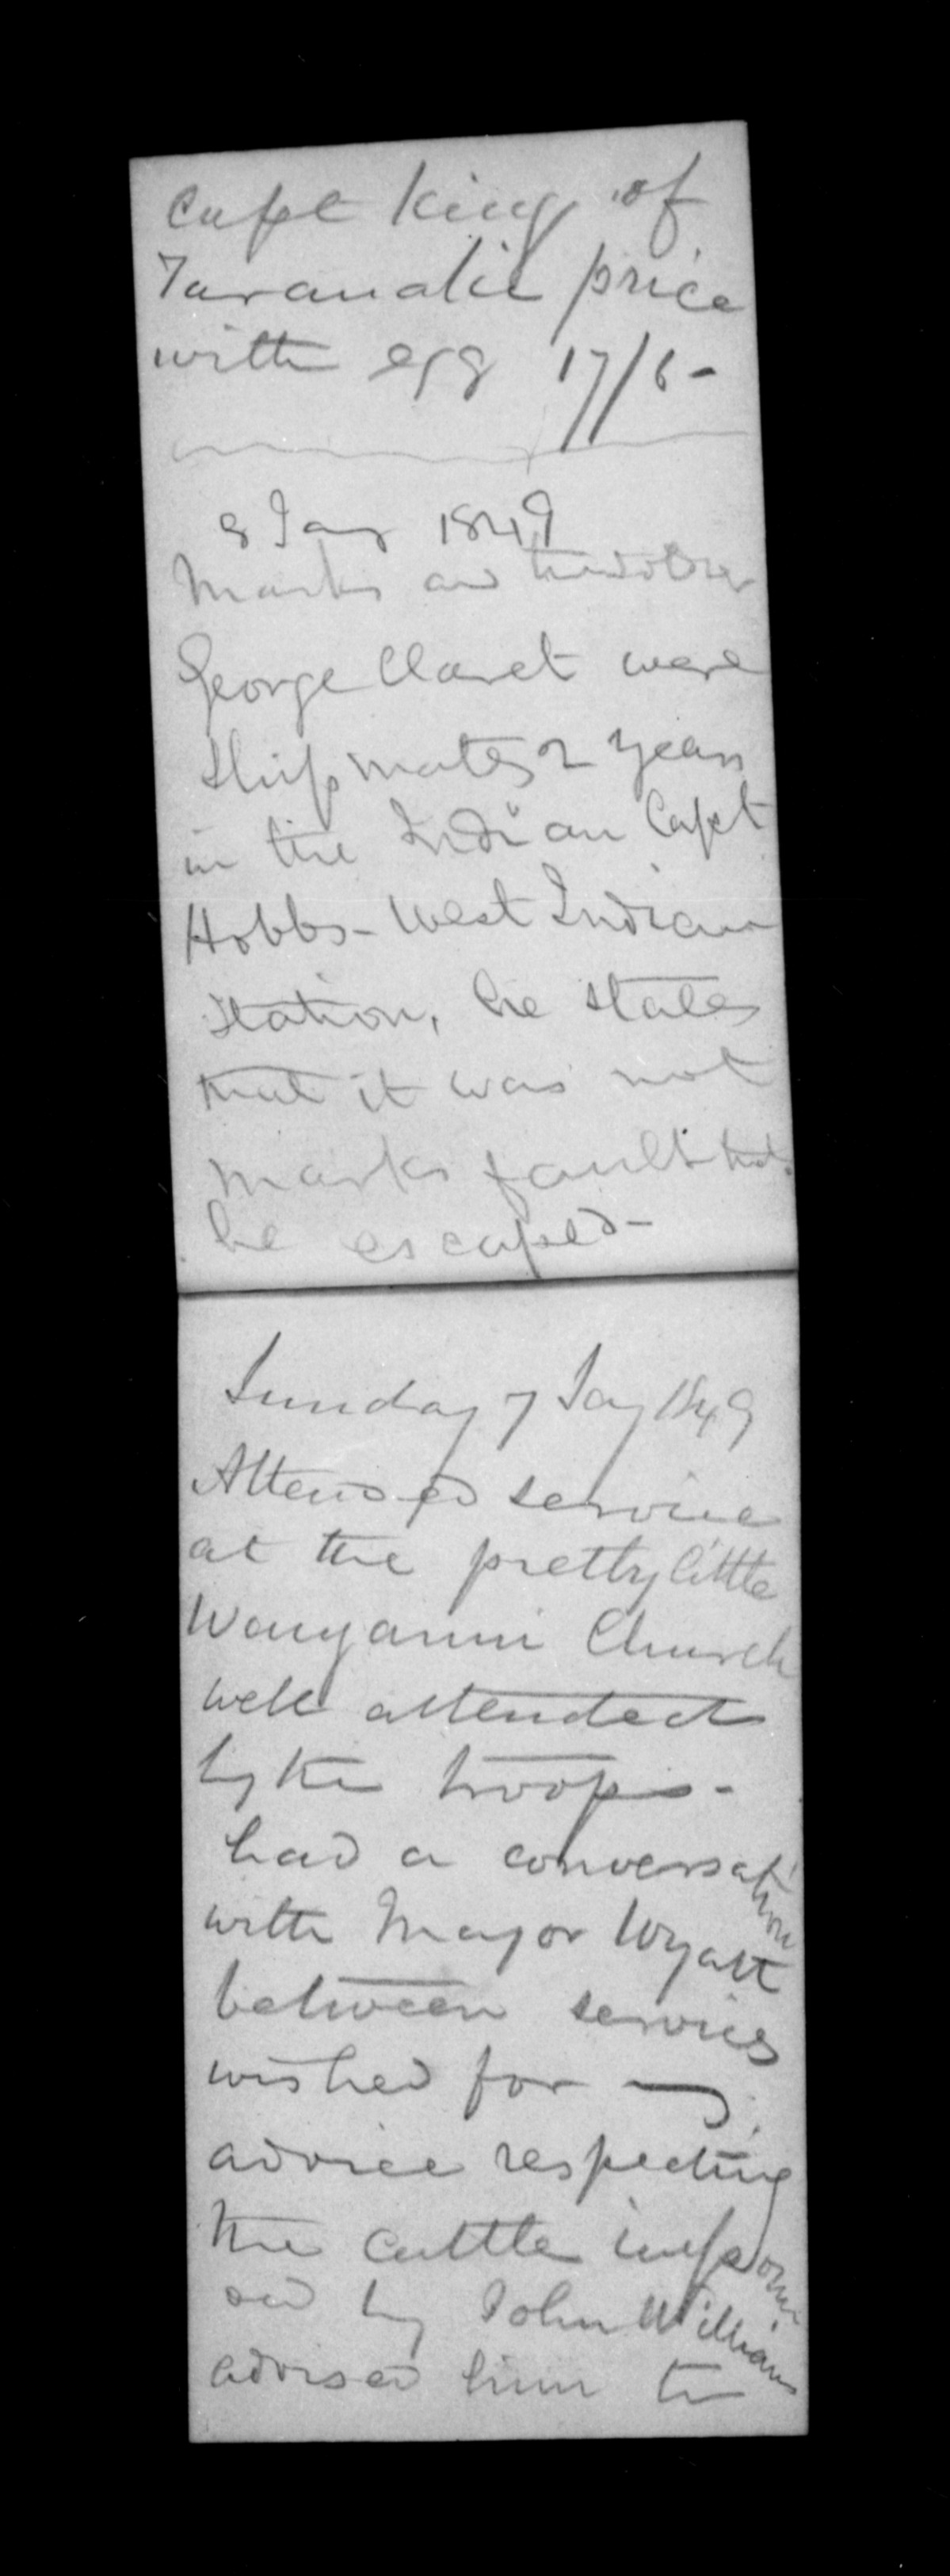 Capt King of
Taranakie price
with egg 17/6-
8 Jany 1849
Marks and
George Claret were
Shipmates 2 years
in the Indian Capt
Hobbs - West Indian
Station, he states
that it was not
Marks fault that
he escaped-
Sunday 7 Jany 1849
Attended service
at the pretty little
Wanganui Church
well attended
by the troops-
had a conversation
with Major Wyatt
between services
wished for my
advice respecting
the cattle impoun
ed by John Williams
advised him to